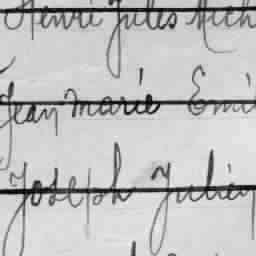 Henri Jules Mich
Jean Marie Emi
Joseph Julien